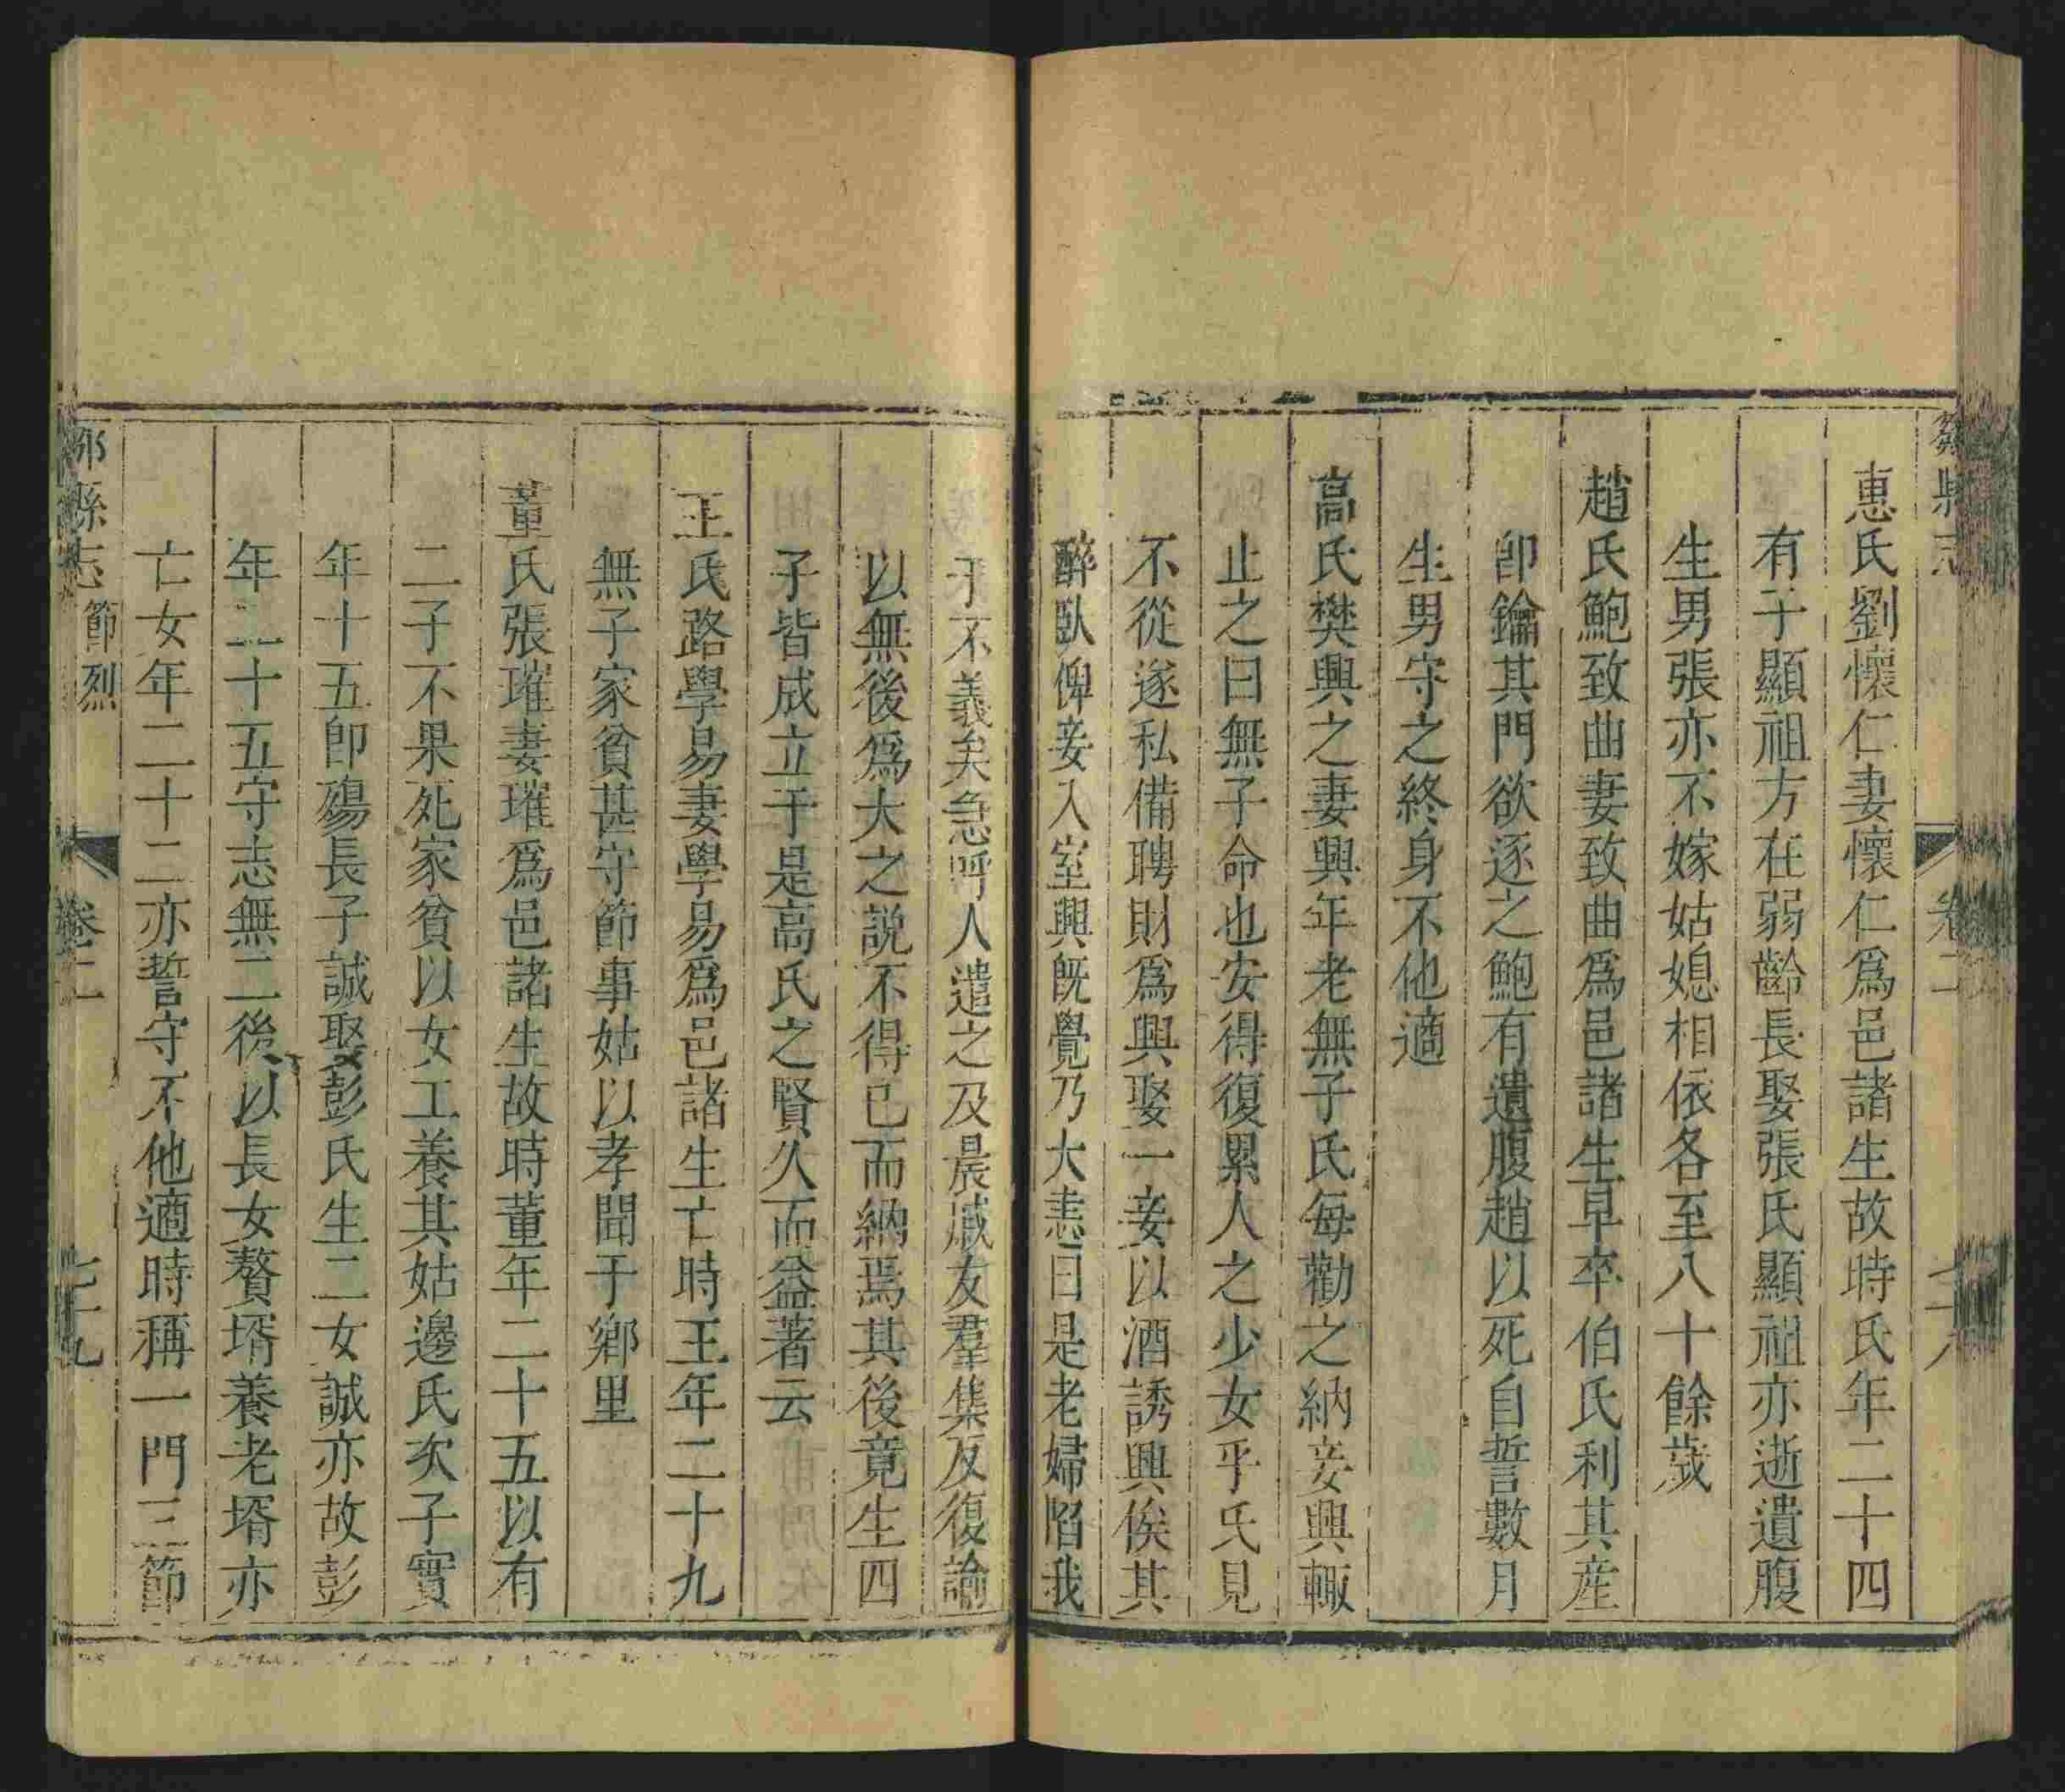 縣志
卷二
惠氏劉懷仁妻懷仁爲邑諸生故時氏年二十四
有子顯祖方在弱齡長娶張氏顯祖亦逝遺腹
生男張亦不嫁姑媳相依各至八十餘歲
趙氏鮑致曲妻致曲爲邑諸生早卒伯氏利其産
卽鑰其門欲逐之鮑有遺腹趙以死自誓數月
生男守之終身不他適
高氏樊興之妻興年老無子氏每勸之納妾興輒
止之曰無子命也安得復累人之少女乎氏見
不從遂私備聘財爲興娶一妾以酒誘興俟其
醉臥俾妾入室興旣覺乃大恚曰是老婦陷我
于不義矣急呼人遣之及晨戚友羣集反復諭
以無後爲大之説不得已而納焉其後竟生四
子皆成立于是高氏之賢久而益著云
王氏路學易妻學易爲邑諸生亡時王年二十九
無子家貧甚守節事姑以孝聞于鄉里
董氏張璀妻璀爲邑諸生故時董年二十五以有
二子不果死家貧以女工養其姑邊氏次子實
年十五卽殤長子誠娶彭氏生二女誠亦故彭
年二十五守志無二後以長女贅壻養老壻亦
亡女年二十二亦誓守不他適時稱一門三節
縣志
節烈
卷二
七十九